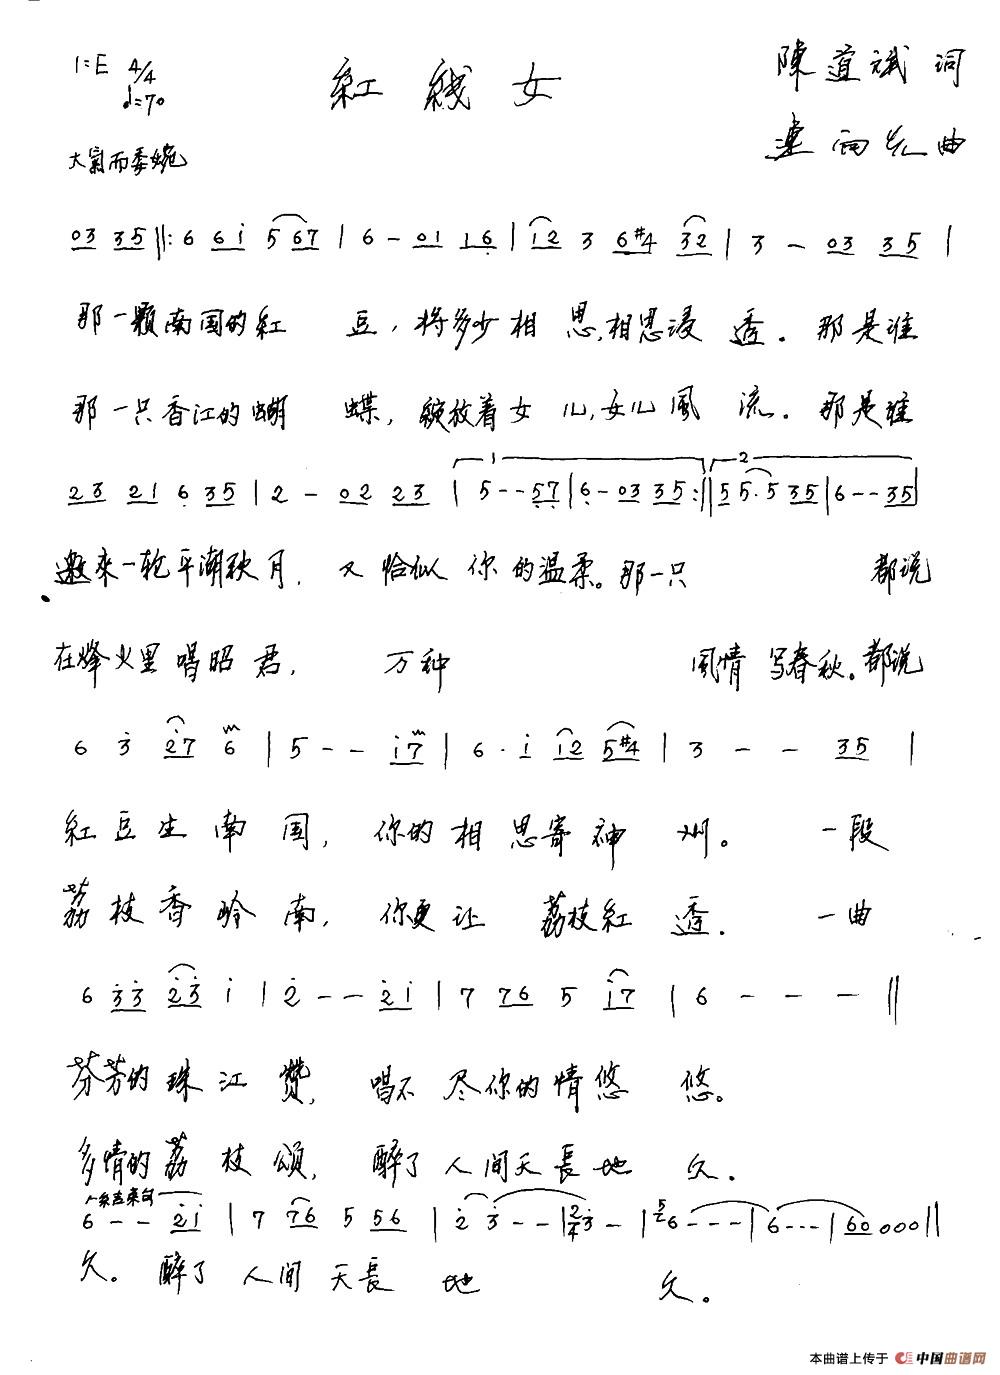 1=E 4/4
♩=70
紅綫女
陳道斌 词
連向先 曲
大氣而委婉
03 35 ‖: 6 61 5 67 | 6 - 01 16 | 12 3 6#4 32 | 3 - 03 35 |
那一颗南国的紅 豆，将多少相 思，相思浸 透。那是谁
那一只香江的蝴 蝶，绽放着女 儿，女儿風 流。那是谁
23 21 6 35 | 2 - 02 23 | 1 5 - - 57 | 6 - 03 35 :‖ 2 55·5 35 | 6 - - 35 |
邀来一轮平潮秋月，又恰似 你的温柔。那一只 都说
在烽火里唱昭君，万种 風情写春秋。都说
6 3 27 6 | 5 - - 17 | 6 · 1 12 5#4 | 3 - - 35 |
紅豆生南国，你的相思寄神 州。 一段
荔枝香岭南，你更让 荔枝紅 透。 一曲
6 33 23 1 | 2 - - 21 | 7 76 5 17 | 6 - - - ‖
芬芳的珠江贊，唱不尽你的情悠 悠。
多情的荔枝颂，醉了人间天長地 久。
6 - - 21 | 7 76 5 56 | 2 3 - - | 2/4 3 - | 56 - - - | 6 - - - | 60 000 ‖
久。醉了人间天長 地 久。
本曲谱上传于 中国曲谱网